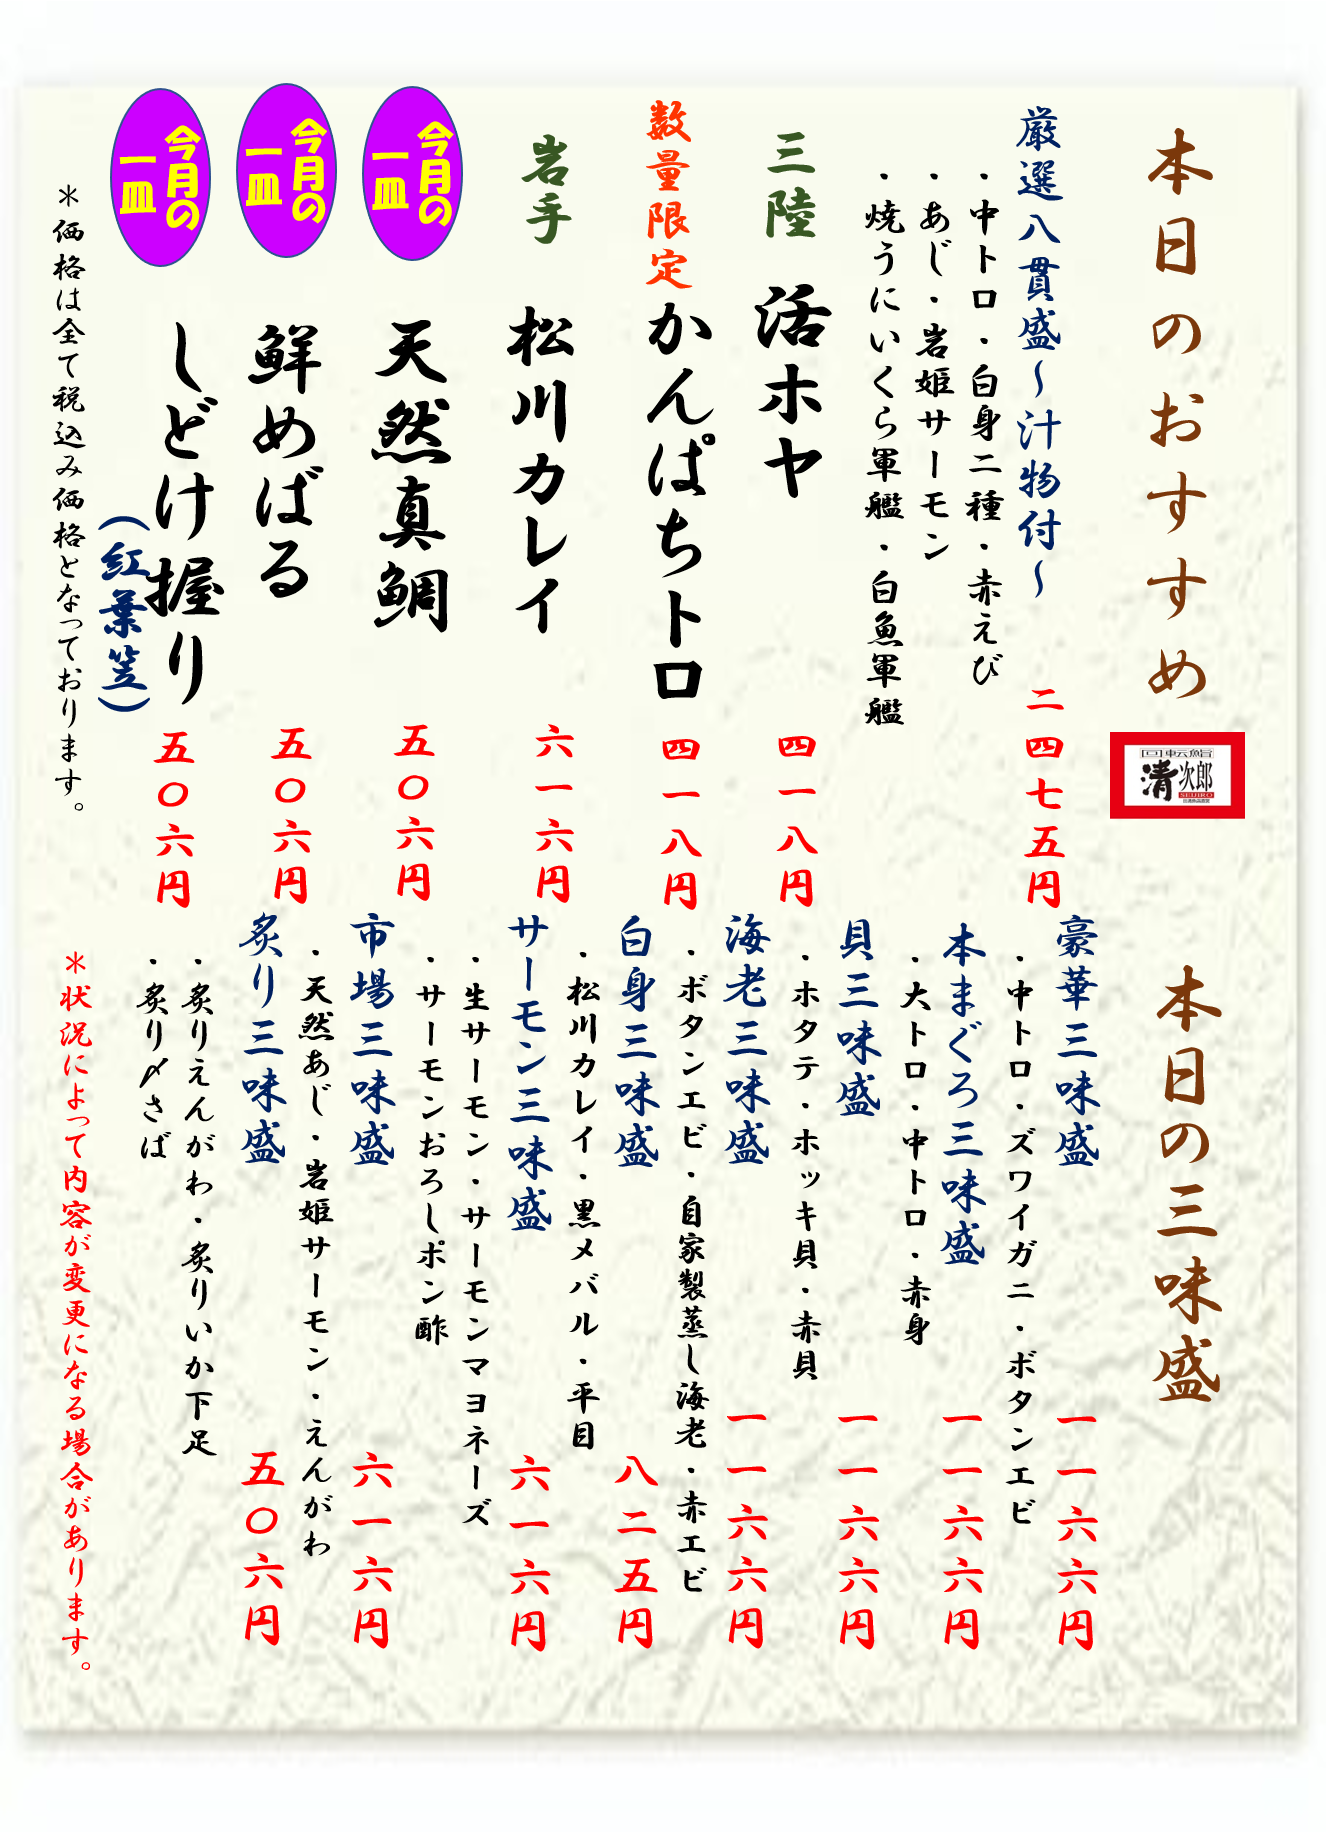 本日のおすすめ
回転鮨
清次郎
SEIJIRO
厳選八貫盛～汁物付～
二四七五円
・中トロ・白身二種・赤えび
・あじ・岩姫サーモン
・焼うにいくら軍艦・白魚軍艦
三陸 活ホヤ
四一八円
数量限定 かんぱちトロ
四一八円
岩手 松川カレイ
六一六円
今月の
一皿
天然真鯛
五〇六円
今月の
一皿
鮮めばる
五〇六円
今月の
一皿
しどけ握り
(紅葉笠)
五〇六円
＊価格は全て税込み価格となっております。
本日の三味盛
豪華三味盛
一一六六円
・中トロ・ズワイガニ・ボタンエビ
本まぐろ三味盛
一一六六円
・大トロ・中トロ・赤身
貝三味盛
一一六六円
・ホタテ・ホッキ貝・赤貝
海老三味盛
一一六六円
・ボタンエビ・自家製蒸し海老・赤エビ
白身三味盛
八二五円
・松川カレイ・黒メバル・平目
サーモン三味盛
六一六円
・生サーモン・サーモンマヨネーズ
・サーモンおろしポン酢
市場三味盛
六一六円
・天然あじ・岩姫サーモン・えんがわ
炙り三味盛
五〇六円
・炙りえんがわ・炙りいか下足
・炙り〆さば
＊状況によって内容が変更になる場合があります。